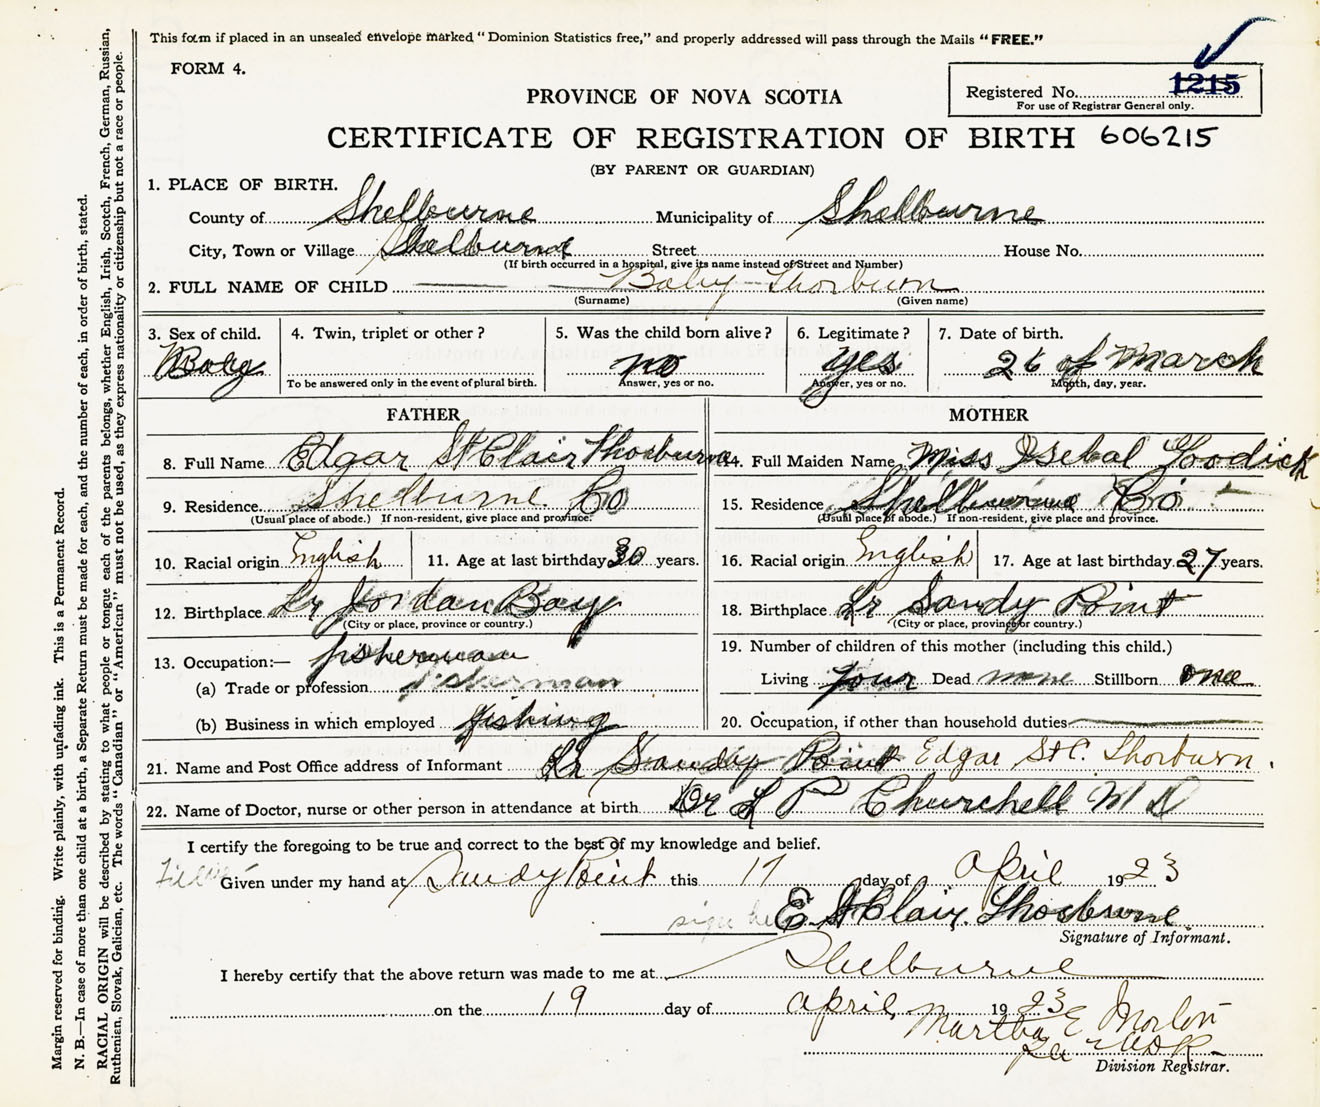 This form if placed in an unsealed envelope marked "Dominion Statistics free," and properly addressed will pass through the Mails "FREE."
FORM 4.
Registered No. 1215
For use of Registrar General only.
PROVINCE OF NOVA SCOTIA
CERTIFICATE OF REGISTRATION OF BIRTH 606215
(BY PARENT OR GUARDIAN)
1. PLACE OF BIRTH.
County of Shelburne Municipality of Shelburne
City, Town or Village Shelburne Street House No.
(If birth occurred in a hospital, give its name instead of Street and Number)
2. FULL NAME OF CHILD Baby Thorburn
(Surname) (Given name)
3. Sex of child. 4. Twin, triplet or other? 5. Was the child born alive? 6. Legitimate? 7. Date of birth.
Boy no yes 26 of March
To be answered only in the event of plural birth. Answer, yes or no. Answer, yes or no. Month, day, year.
FATHER
8. Full Name Edgar St Clair Thorburne
9. Residence Shelburne Co
(Usual place of abode.) If non-resident, give place and province.
10. Racial origin English 11. Age at last birthday 30 years.
12. Birthplace Lr Jordan Bay
(City or place, province or country.)
13. Occupation:— fisherman
(a) Trade or profession fisherman
(b) Business in which employed fishing
MOTHER
14. Full Maiden Name Miss Isebal Goodick
15. Residence Shelburne Co
(Usual place of abode.) If non-resident, give place and province.
16. Racial origin English 17. Age at last birthday 27 years.
18. Birthplace Lr Sandy Point
(City or place, province or country.)
19. Number of children of this mother (including this child.)
Living four Dead none Stillborn one
20. Occupation, if other than household duties
21. Name and Post Office address of Informant Lr Sandy Point Edgar St C. Thorburn.
22. Name of Doctor, nurse or other person in attendance at birth Dr L P Churchell M D
I certify the foregoing to be true and correct to the best of my knowledge and belief.
Given under my hand at Sandy Point this 17 day of April 1923
sign here E St Clair Thorburne
Signature of Informant.
I hereby certify that the above return was made to me at Shelburne
on the 19 day of April, 1923
Martha E Morton
Division Registrar.
Margin reserved for binding. Write plainly, with unfading ink. This is a Permanent Record.
N. B.—In case of more than one child at a birth, a Separate Return must be made for each, and the number of each, in order of birth, stated.
RACIAL ORIGIN will be described by stating to what people or tongue each of the parents belongs, whether English, Irish, Scotch, French, German, Russian,
Ruthenian, Slovak, Galician, etc. The words "Canadian" or "American" must not be used, as they express nationality or citizenship but not a race or people.